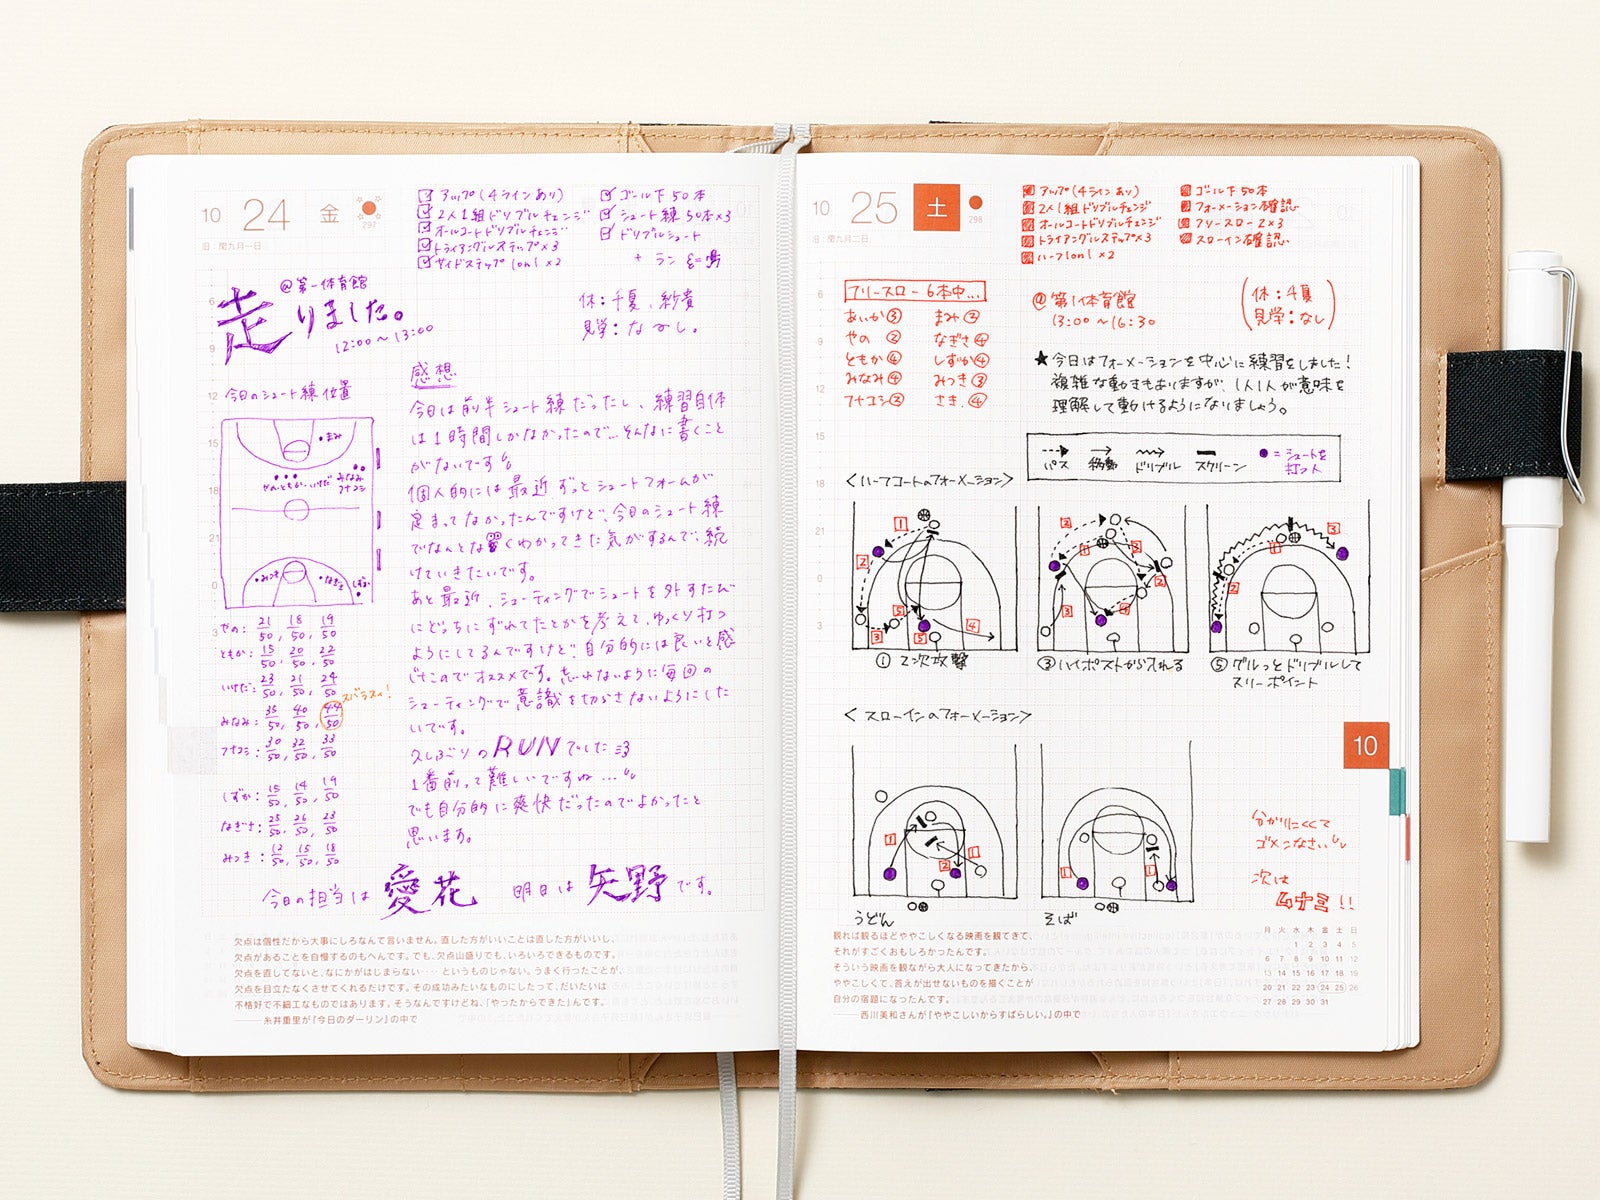 10 24 金
297
旧：閏九月一日
アップ(4ラインあり)
2人1組ドリブルチェンジ
オールコートドリブルチェンジ
トライアングルステップ×3
サイドステップ1on1×2
ゴール下50本
シュート練 50本×3
ドリブルシュート
+ ラン
@第一体育館
走りました。
12:00〜13:00
休：千夏、紗貴
見学：なかし。
今日のシュート練 位置
まみ
やの、ともか、いけだ
みなみ
フナコシ
みつき
なぎさ
しずか
やの： 21/50, 18/50, 19/50
ともか： 15/50, 20/50, 22/50
いけだ： 23/50, 21/50, 24/50
スバラスィ！
みなみ： 35/50, 40/50, 44/50
フナコシ： 30/50, 32/50, 33/50
しずか： 15/50, 14/50, 19/50
なぎさ： 25/50, 26/50, 23/50
みつき： 12/50, 15/50, 18/50
感想
今日は前半シュート練だったし、練習自体
は1時間しかなかったので…そんなに書くこと
がないです
個人的には最近ずっとシュートフォームが
定まってなかったんですけど、今日のシュート練
でなんとなくわかってきた気がするんで、続
けていきたいです。
あと最近、シューティングでシュートを外すたび
にどっちにずれてたとかを考えて、ゆっくり打つ
ようにしてるんですけど、自分的には良いと感
じたのでオススメです。忘れないように毎回の
シューティングで意識を切らさないようにした
いです。
久しぶりのRUNでした
1番前って難しいですね…
でも自分的に爽快だったのでよかったと
思います。
今日の担当は 愛花 明日は 矢野 です。
欠点は個性だから大事にしろなんて言いません。直した方がいいことは直した方がいいし、
欠点があることを自慢するのもへんです。でも、欠点山盛りでも、いろいろできるものです。
欠点を直してないと、なにかがはじまらない‥‥というものじゃない。うまく行ったことが、
欠点を目立たなくさせてくれるだけです。その成功みたいなものにしたって、だいたいは
不格好で不細工なものではあります。そうなんですけどね、「やったからできた」んです。
——糸井重里が『今日のダーリン』の中で
10 25 土
298
旧：閏九月二日
アップ(4ラインあり)
2人1組ドリブルチェンジ
オールコートドリブルチェンジ
トライアングルステップ×3
ハーフ1on1×2
ゴール下50本
フォーメーション確認
フリースロー2×3
スローイン確認
フリースロー 6本中…
あいか③ まみ②
やの② なぎさ④
ともか④ しずか④
みなみ④ みつき③
フナコシ② さき.④
@第1体育館
13:00〜16:30
(休：千夏
見学：なし)
★今日はフォーメーションを中心に練習をしました！
複雑な動きもありますが、1人1人が意味を
理解して動けるようになりましょう。
パス 移動 ドリブル スクリーン ●=シュートを打つ人
<ハーフコートのフォーメーション>
1
2
3
4
5
5
① 2次攻撃
2
1
3
2
3
4
③ハイポストから入れる
1
2
3
⑤グルっとドリブルして
スリーポイント
< スローインのフォーメーション>
1
1
2
うどん
1
1
そば
分かりにくくて
ゴメンなさい
次は
ムナミ!!
10
観れば観るほどややこしくなる映画を観てきて、
それがすごくおもしろかったんです。
そういう映画を観ながら大人になってきたから、
ややこしくて、答えが出せないものを描くことが
自分の宿題になったんです。
——西川美和さんが『ややこしいからすばらしい。』の中で
月 火 水 木 金 土 日
1 2 3 4 5
6 7 8 9 10 11 12
13 14 15 16 17 18 19
20 21 22 23 24 25 26
27 28 29 30 31